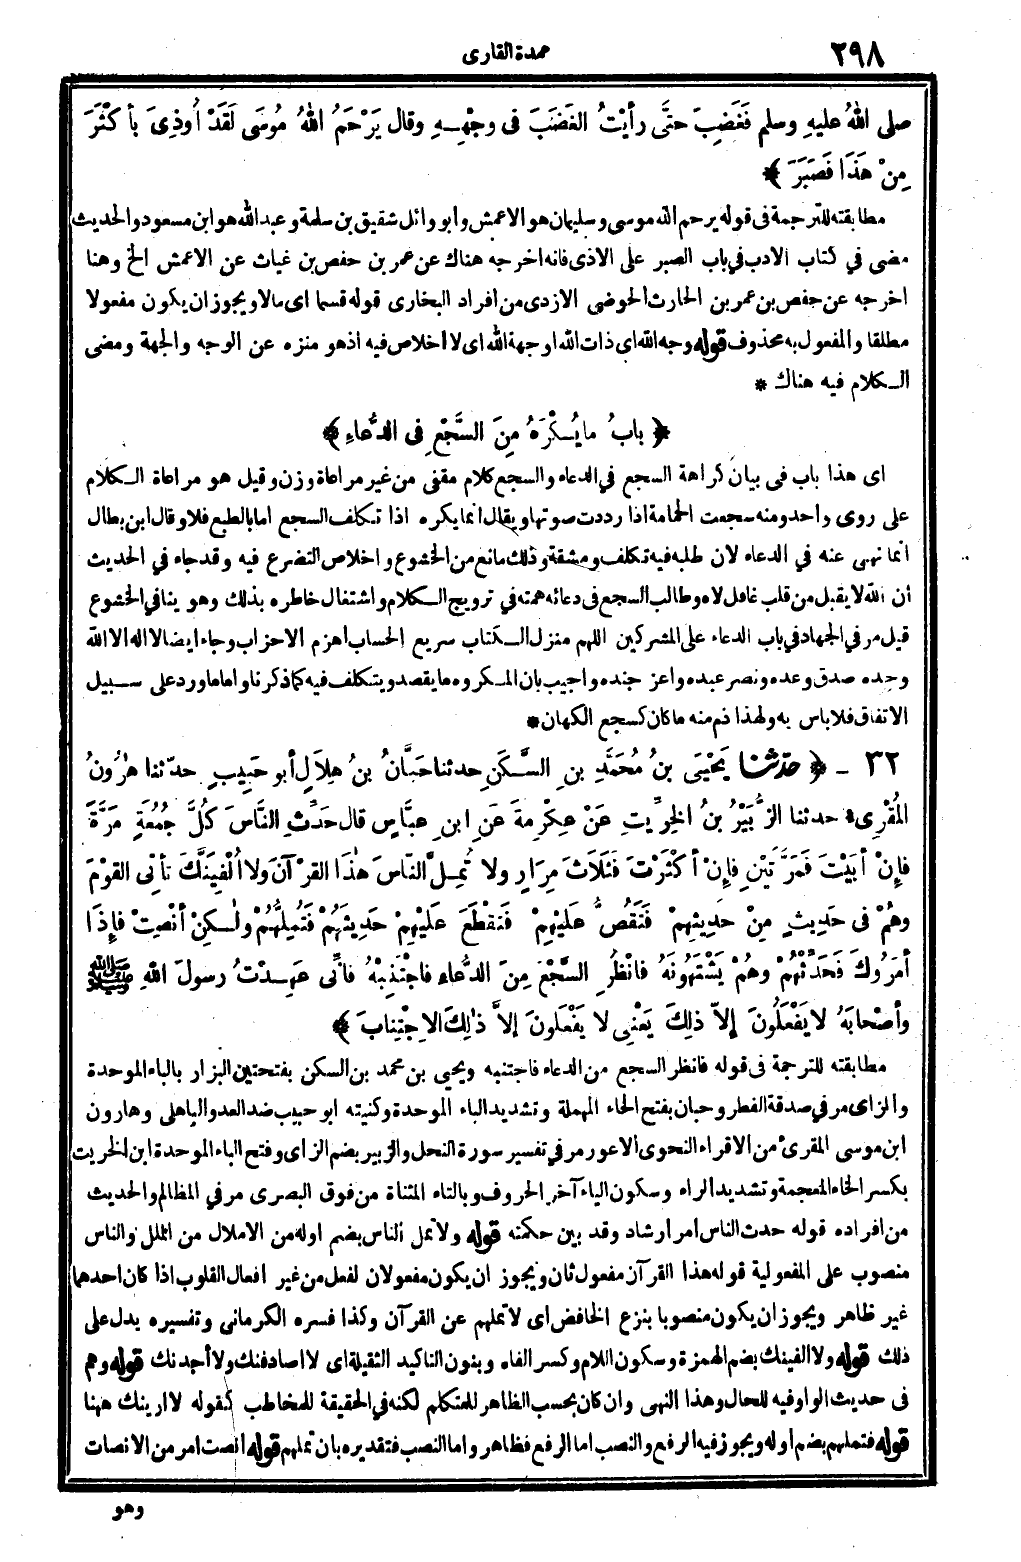 ٢٩٨
عمدة القارى
صلى اللهُ عليهِ وسلم فَغَضِبَ حتَّى رأيْتُ الغَضَبَ فى وجْهِـهِ وقال يَرْحَمُ اللهُ مُوسَى لَقَدْ أُوذِىَ بأكْثَرَ
مِنْ هَذَا فَصَبَرَ ﴾
مطابقته للترجمة فى قوله يرحم الله موسى وسليمان هو الاعمش وأبو وائل شقيق بن سلمة وعبد الله هو ابن مسعود والحديث
مضى في كتاب الادب في باب الصبر على الاذى فانه اخرجه هناك عن عمر بن حفص بن غياث عن الاعمش الخ وهنا
اخرجه عن حفص بن عمر بن الحارث الحوضى الازدى من افراد البخارى قوله قسما اى مالا ويجوز ان يكون مفعولا
مطلقا والمفعول به محذوف قوله وجه الله اى ذات الله او جهة الله اى لا اخلاص فيه اذ هو منزه عن الوجه والجهة ومضى
الـكلام فيه هناك *
﴿ بابُ ما يُـكْرَهُ مِنَ السَّجْعِ فى الدُّعاءِ ﴾
اى هذا باب فى بيان كراهة السجع في الدعاء والسجع كلام مقفى من غير مراعاة وزن وقيل هو مراعاة الـكلام
على روى واحد ومنه سجعت الحمامة اذا رددت صوتها ويقال انما يكره اذا تـكلف السجع اما بالطبع فلا وقال ابن بطال
انما نهى عنه في الدعاء لان طلبه فيه تكلف ومشقة وذلك مانع من الخشوع واخلاص التضرع فيه وقد جاء في الحديث
أن الله لا يقبل من قلب غافل لاه وطالب السجع فى دعائه همته في ترويج الـكلام واشتغال خاطره بذلك وهو ينافي الخشوع
قيل مر في الجهاد في باب الدعاء على المشركين اللهم منزل الـكتاب سريع الحساب اهزم الاحزاب وجاء ايضا لا اله الا الله
وحده صدق وعده ونصر عبده واعز جنده واجيب بان المـكروه ما يقصد ويتكلف فيه كما ذكرنا واما ما ورد على سـبيل
الاتفاق فلا باس به ولهذا ذم منه ما كان كسجع الكهان *
٣٢ ـ ﴿ حدثنا يَحْيَى بنُ مُحَمَّدِ بنِ السَّـكَنِ حدثنا حَبَّانُ بنُ هِلاَلٍ أبو حَبِيبٍ حدّثنا هٰرُونُ
المُقْرِىءُ حدثنا الزُّبَيْرُ بنُ الخِرِّيتِ عَنْ عِكْرِمةَ عَنِ ابنِ عبَّاسٍ قال حَدِّثِ النَّاسَ كُلَّ جُمُعَةٍ مَرَّةً
فإِنْ أبَيْتَ فَمَرَّتَيْنِ فإِنْ أكْثَرْتَ فَثَلاَثَ مِرَارٍ ولا تُمِـلَّ النّاسَ هٰذا القرْآنَ ولا أُلْفِيَنَّكَ تَأتِى القوْمَ
وهُمْ فى حَدِيثٍ مِنْ حَدِيثِهِمْ فَتَقُصُّ عَلَيْهِمْ فَتَقْطَعَ عَلَيْهِمْ حَدِيثَهُمْ فَتُمِلَّهُمْ ولٰـكِنْ أنْصِتْ فإِذَا
أمَرُوكَ فَحَدِّثْهُمْ وهُمْ يَشْتَهُونَهُ فانْظُرِ السَّجْعَ مِنَ الدُّعاءِ فاجْتَنِبْهُ فانِّى عَهِـدْتُ رسولَ اللهِ ﷺ
وأصْحابَهُ لا يَفْعَلُونَ إلاّ ذلِكَ يَعْنِى لا يَفْعَلُونَ إلاَّ ذٰلِكَ الاِجْتِنابَ ﴾
مطابقته للترجمة فى قوله فانظر السجع من الدعاء فاجتنبه ويحيى بن محمد بن السكن بفتحتين البزار بالباء الموحدة
والزاى مر في صدقة الفطر وحبان بفتح الحاء المهملة وتشديد الباء الموحدة وكنيته ابو حبيب ضد العدو الباهلى وهارون
ابن موسى المقرئ من الاقراء النحوى الاعور مر في تفسير سورة النحل والزبير بضم الزاى وفتح الباء الموحدة ابن الخريت
بكسر الخاء المعجمة وتشديد الراء وسكون الياء آخر الحروف وبالتاء المثناة من فوق البصرى مر في المظالم والحديث
من افراده قوله حدث الناس امر ارشاد وقد بين حكمته قوله ولا تمل الناس بضم اوله من الاملال من الملل والناس
منصوب على المفعولية قوله هذا القرآن مفعول ثان ويجوز ان يكون مفعولان لفعل من غير افعال القلوب اذا كان احدهما
غير ظاهر ويجوز ان يكون منصوبا بنزع الخافض اى لا تملهم عن القرآن وكذا فسره الكرمانى وتفسيره يدل على
ذلك قوله ولا الفينك بضم الهمزة وسكون اللام وكسر الفاء وبنون التاكيد الثقيلة اى لا اصادفنك ولا أجدنك قوله وهم
فى حديث الواو فيه للحال وهذا النهى وان كان بحسب الظاهر للمتكلم لكنه في الحقيقة للمخاطب كقوله لا ارينك ههنا
قوله فتملهم بضم اوله ويجوز فيه الرفع والنصب اما الرفع فظاهر واما النصب فتقديره بان تملهم قوله انصت امر من الانصات
وهو